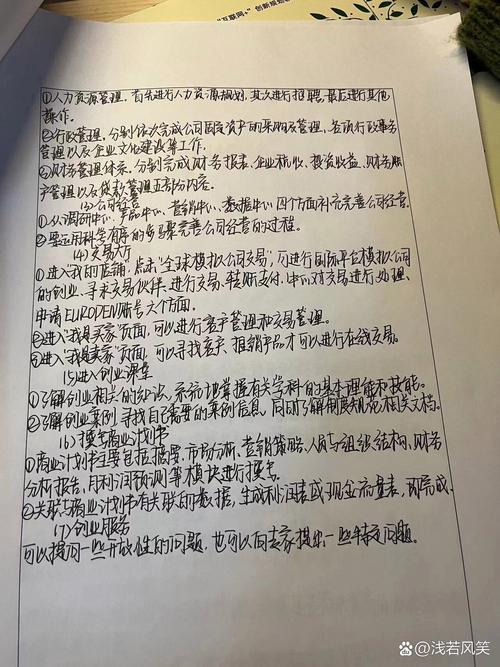 "互联网+"创新
①人力资源管理,首先进行人力资源规划,其次进行招聘,最后进行其他
操作。
②行政管理,分别依次完成公司固定资产的采购及管理、各项行政事务
管理以及企业文化建设等工作。
③财务管理体系,分别完成财务报表、企业税收、投资收益、财务账
产管理以及贷款管理五部分内容。
(3)公司经营
①从调研中心、产品中心、营销中心、数据中心四个方面补充完善公司经营。
②要运用科学有序的步骤完善公司经营的过程。
(4)交易大厅
①进入我的店铺,点击"全球模拟公司交易",可进行国际平台模拟公司
的创业、寻求交易伙伴、进行交易、转账支付、中心对交易进行处理、
申请EUROPEN账号六个方面。
②进入"我是买家"页面,可以进行客户管理和交易管理。
③进入"我是卖家"页面,可以寻找客户,推销产品才可以进行在线交易。
(5)进入创业课堂
①了解创业相关的知识,系统地掌握有关学科的基本理论和技能。
②了解创业案例,寻找自己需要的案例信息,同时了解制度规范相关文档。
(6)撰写商业计划书
①商业计划书主要包括摘要、市场分析、营销策略、人员与组织结构、财务
分析报告、月利润预测等模块进行撰写。
②关联与商业计划书有关联的数据,生成利润表或现金流量表,即完成。
(7)创业服务
可以提问一些开放性的问题,也可以向专家提出一些特定问题。
@浅若风笑